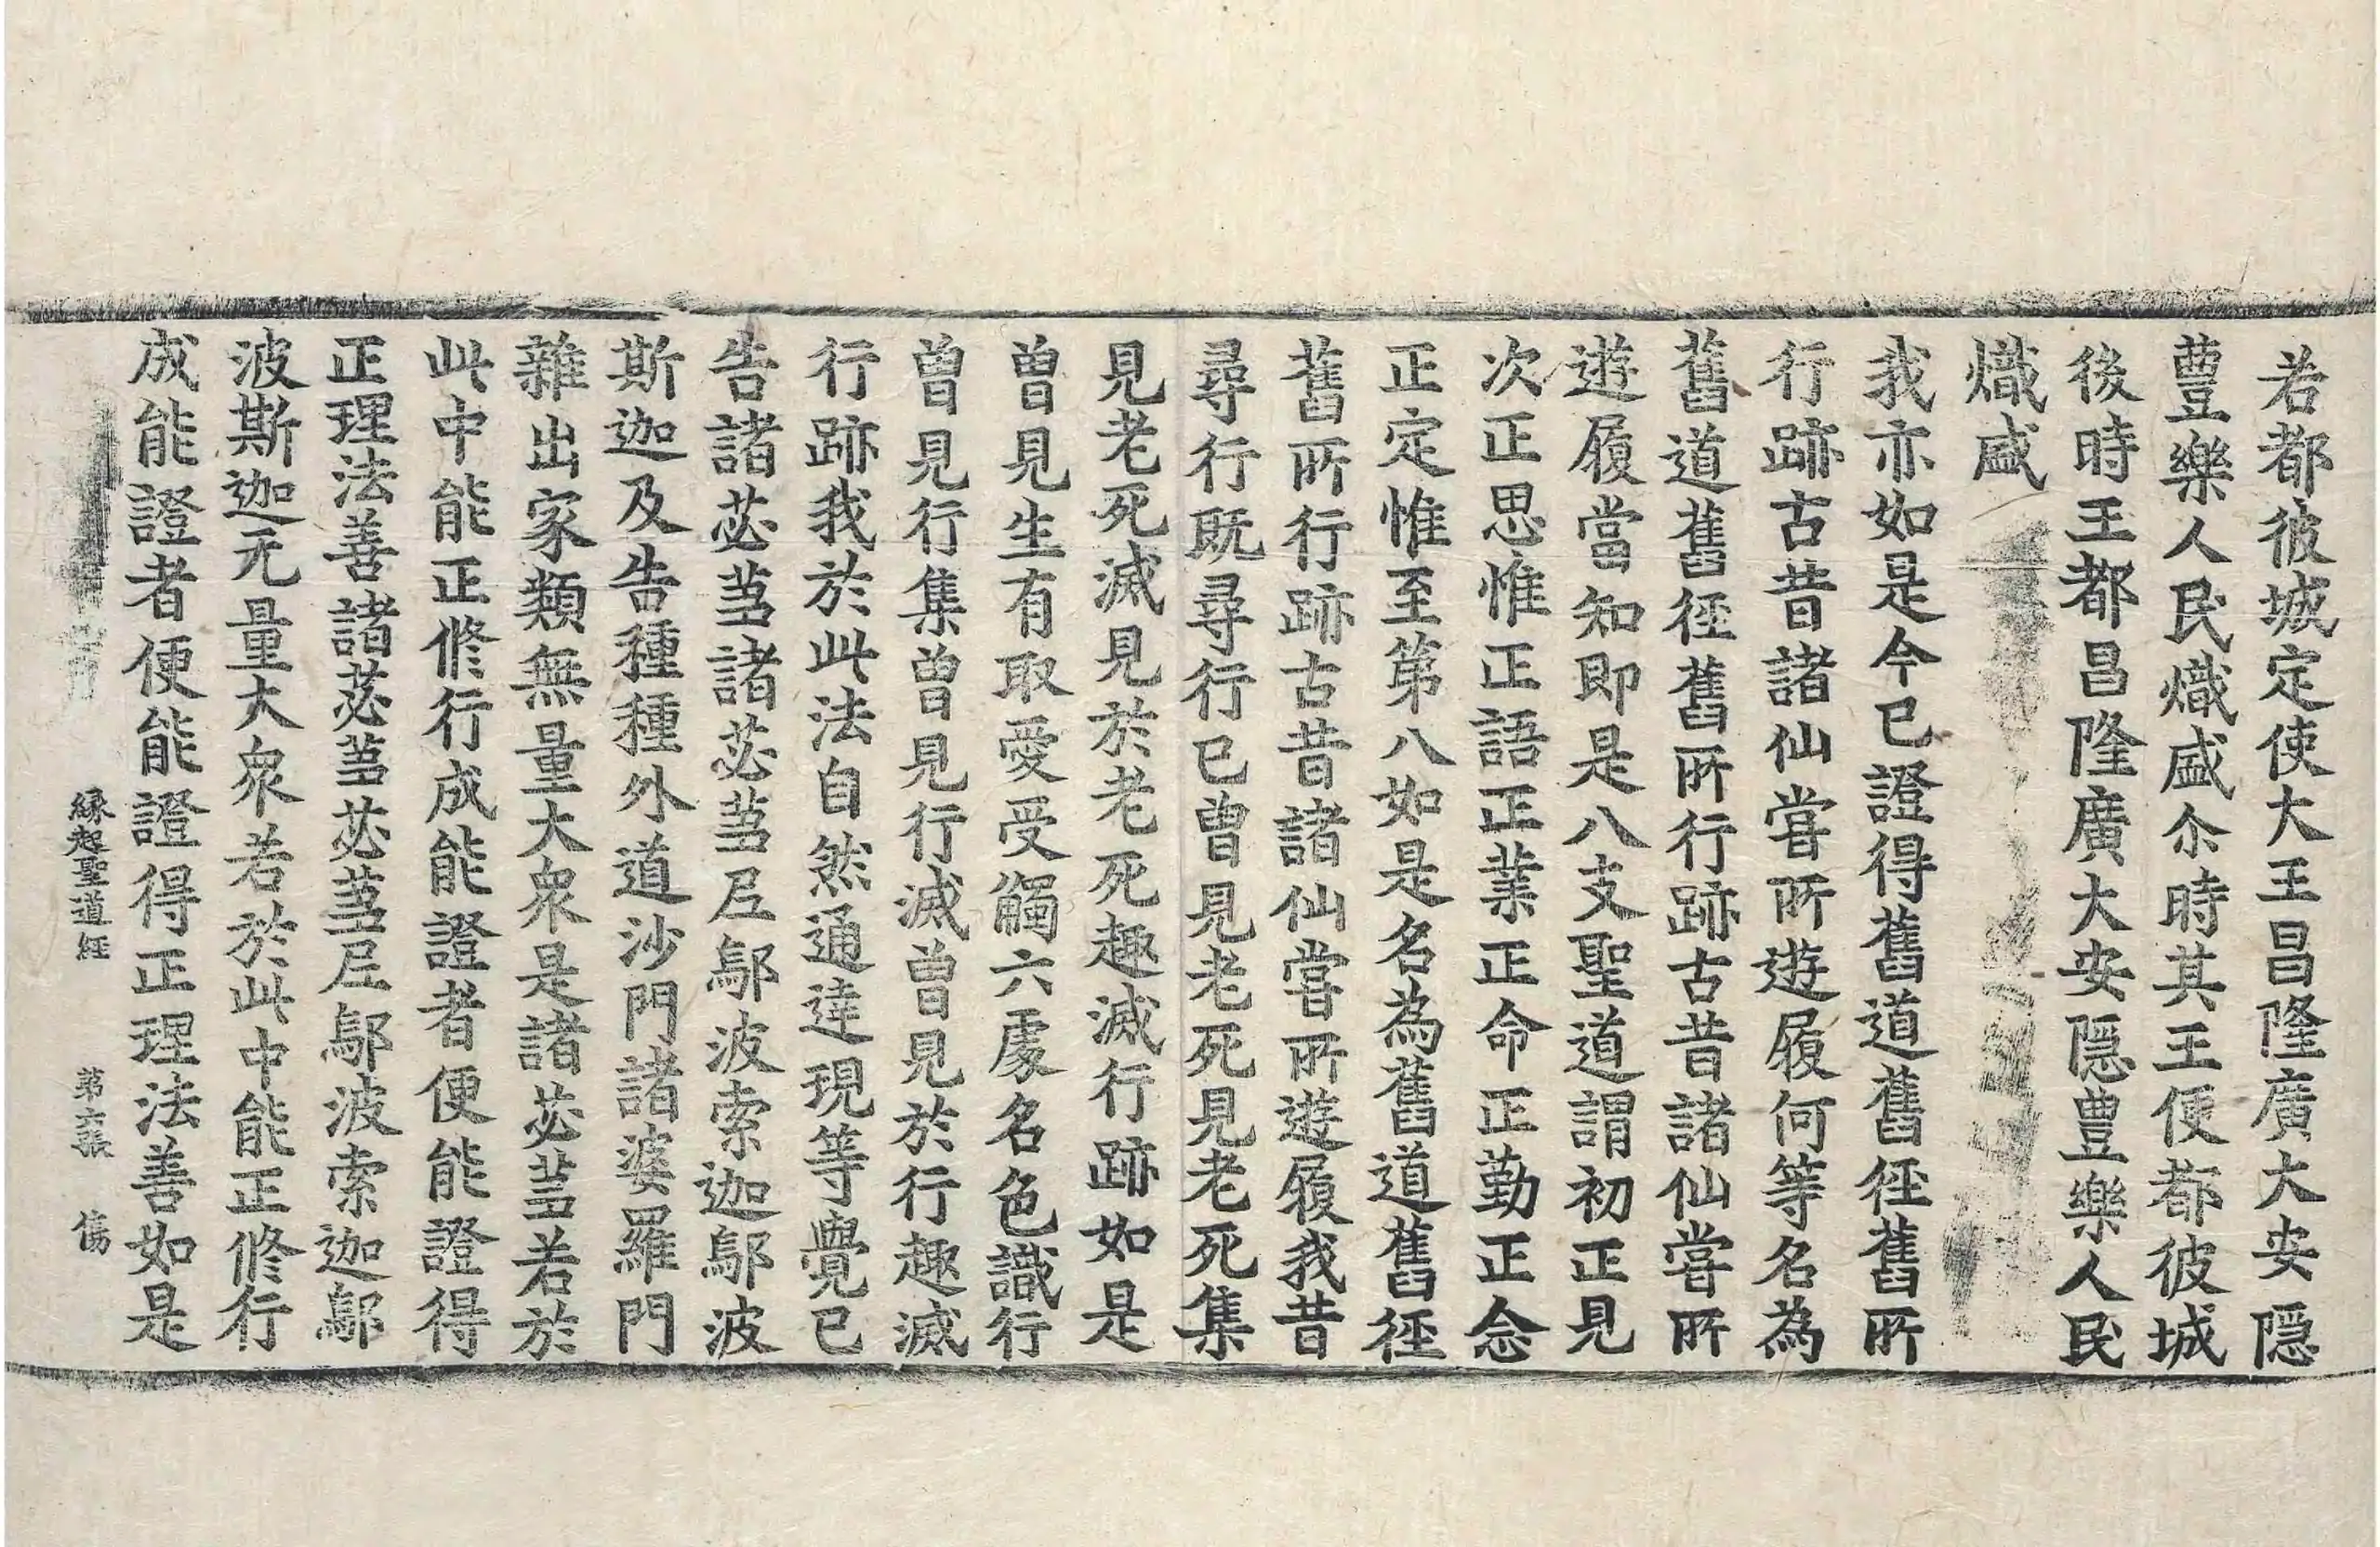 若都彼城定使大王昌隆廣大安隠
豊樂人民熾盛尒時其王便都彼城
後時王都昌隆廣大安隠豊樂人民
熾盛
我亦如是今已證得舊道舊徑舊所
行跡古昔諸仙嘗所遊履何等名為
舊道舊徑舊所行跡古昔諸仙嘗所
遊履當知即是八支聖道謂初正見
次正思惟正語正業正命正勤正念
正定惟至第八如是名為舊道舊徑
舊所行跡古昔諸仙嘗所遊履我昔
尋行既尋行已曾見老死見老死集
見老死滅見於老死趣滅行跡如是
曾見生有取愛受觸六處名色識行
曾見行集曾見行滅曾見於行趣滅
行跡我於此法自然通達現等覺已
告諸苾芻諸苾芻𡰱鄔波索迦鄔波
斯迦及告種種外道沙門諸婆羅門
雜出家類無量大衆是諸苾芻若於
此中能正修行成能證者便能證得
正理法善諸苾芻苾芻𡰱鄔波索迦鄔
波斯迦无量大衆若於此中能正修行
成能證者便能證得正理法善如是
縁起聖道經 第六張 傷